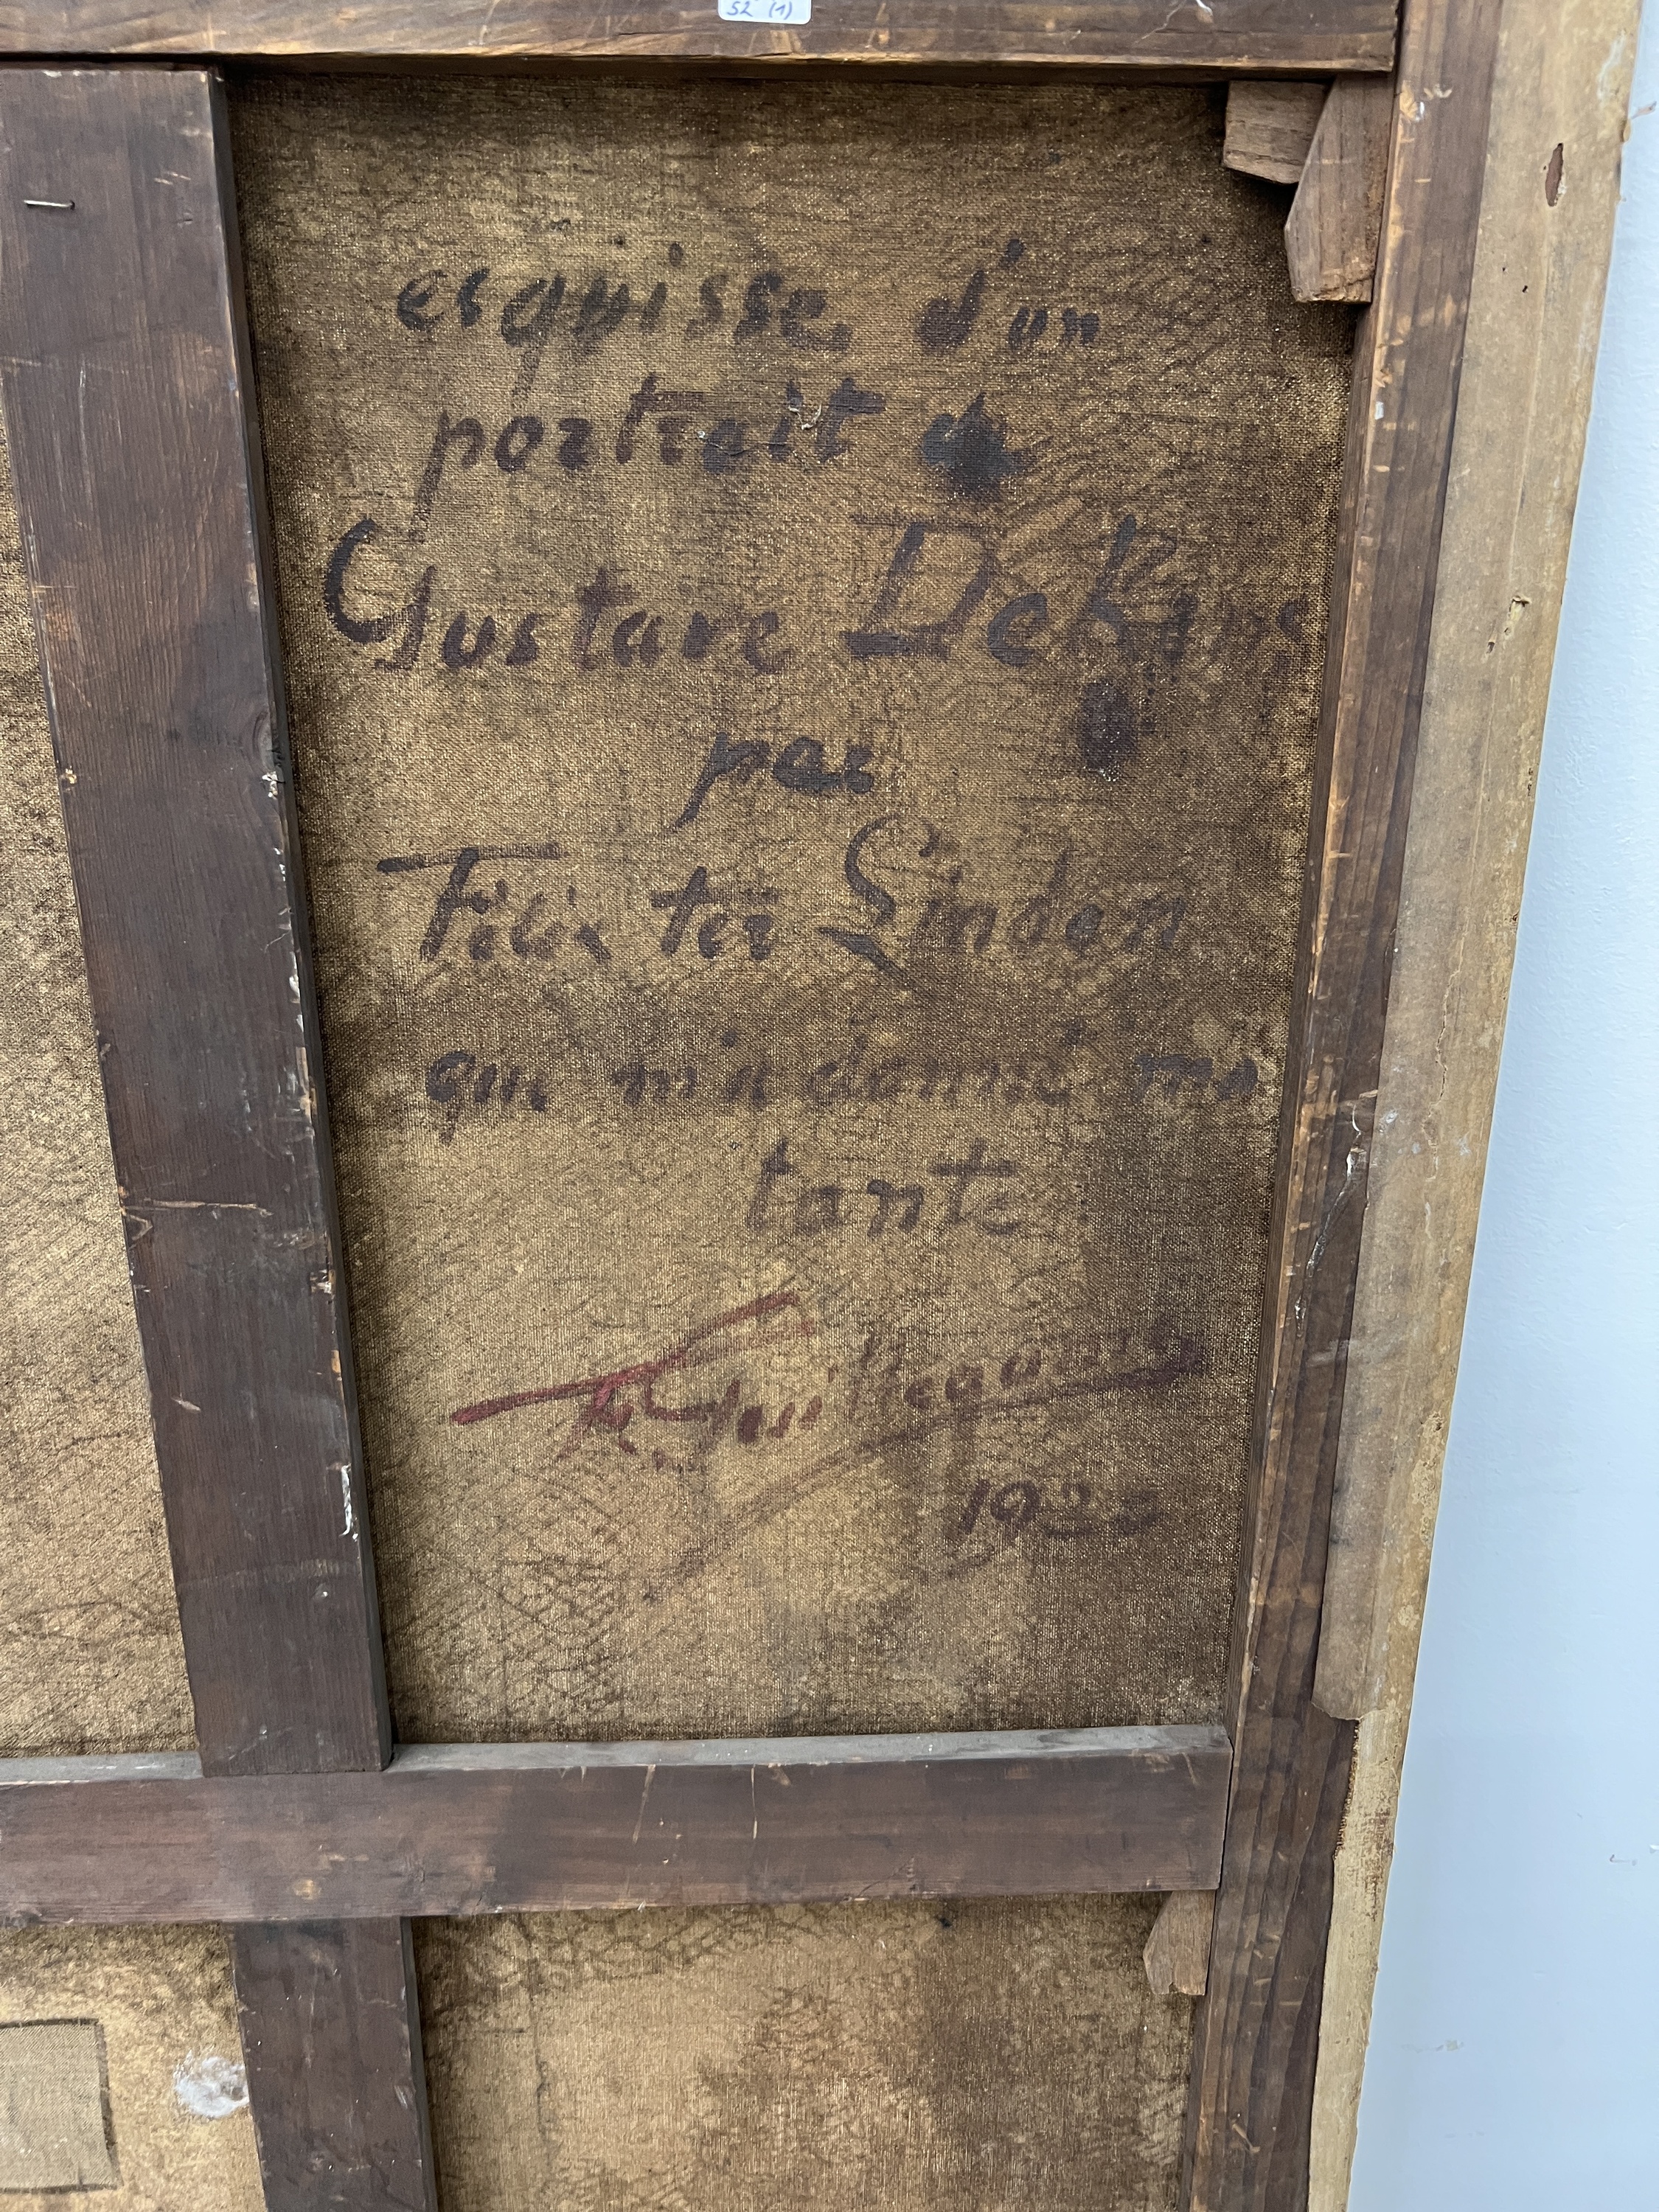 52 (1)
esquisse d'un
portrait de
Gustave
par
Félix ter Linden
qui m'a donné ma
tante
19